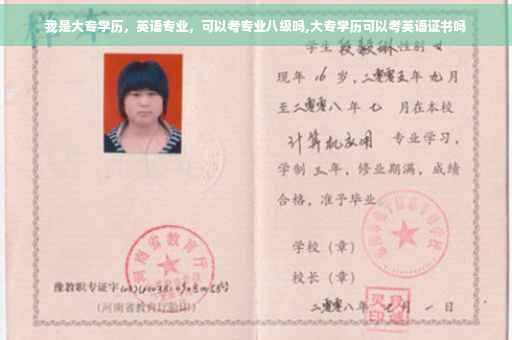 我是大专学历，英语专业，可以考专业八级吗,大专学历可以考英语证书吗
样本
学生段毅琳性别女
现年16岁，二零零五年九月
至二零零八年七月在本校
计算机应用 专业学习，
学制三年，修业期满，成绩
合格，准予毕业。
学校（章）
校长（章）
河南省教育厅
豫教职专证字
（河南省教育厅验印）
二零零八年七月一日